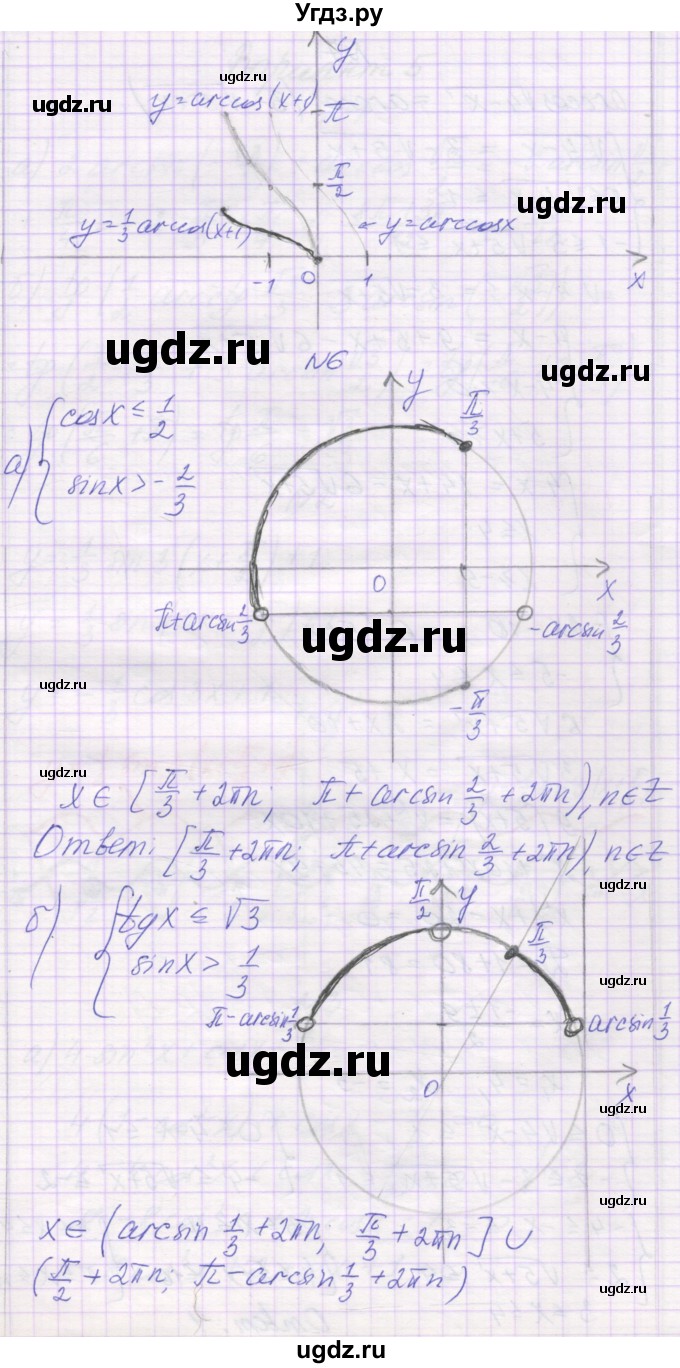 Угдз.ру
y
ugdz.ru
y=arccos(x+1)
π
ugdz.ru
π/2
ugdz.ru
y=1/3 arccos(x+1)
y=arccosx
-1
0
1
x
ugdz.ru
№6
ugdz.ru
y
π/3
а) { cosx ≤ 1/2
sinx > -2/3
ugdz.ru
0
x
π+arcsin 2/3
ugdz.ru
-arcsin 2/3
ugdz.ru
-π/3
ugdz.ru
x∈[π/3+2πn; π+arcsin 2/3+2πn), n∈Z
Ответ: [π/3+2πn; π+arcsin 2/3+2πn), n∈Z
ugdz.ru
π/2
y
б) { tgx ≤ √3
sinx > 1/3
π/3
π-arcsin 1/3
arcsin 1/3
ugdz.ru
0
x
ugdz.ru
ugdz.ru
x∈(arcsin 1/3+2πn; π/3+2πn]∪
(π/2+2πn; π-arcsin 1/3+2πn)
ugdz.ru
ugdz.ru